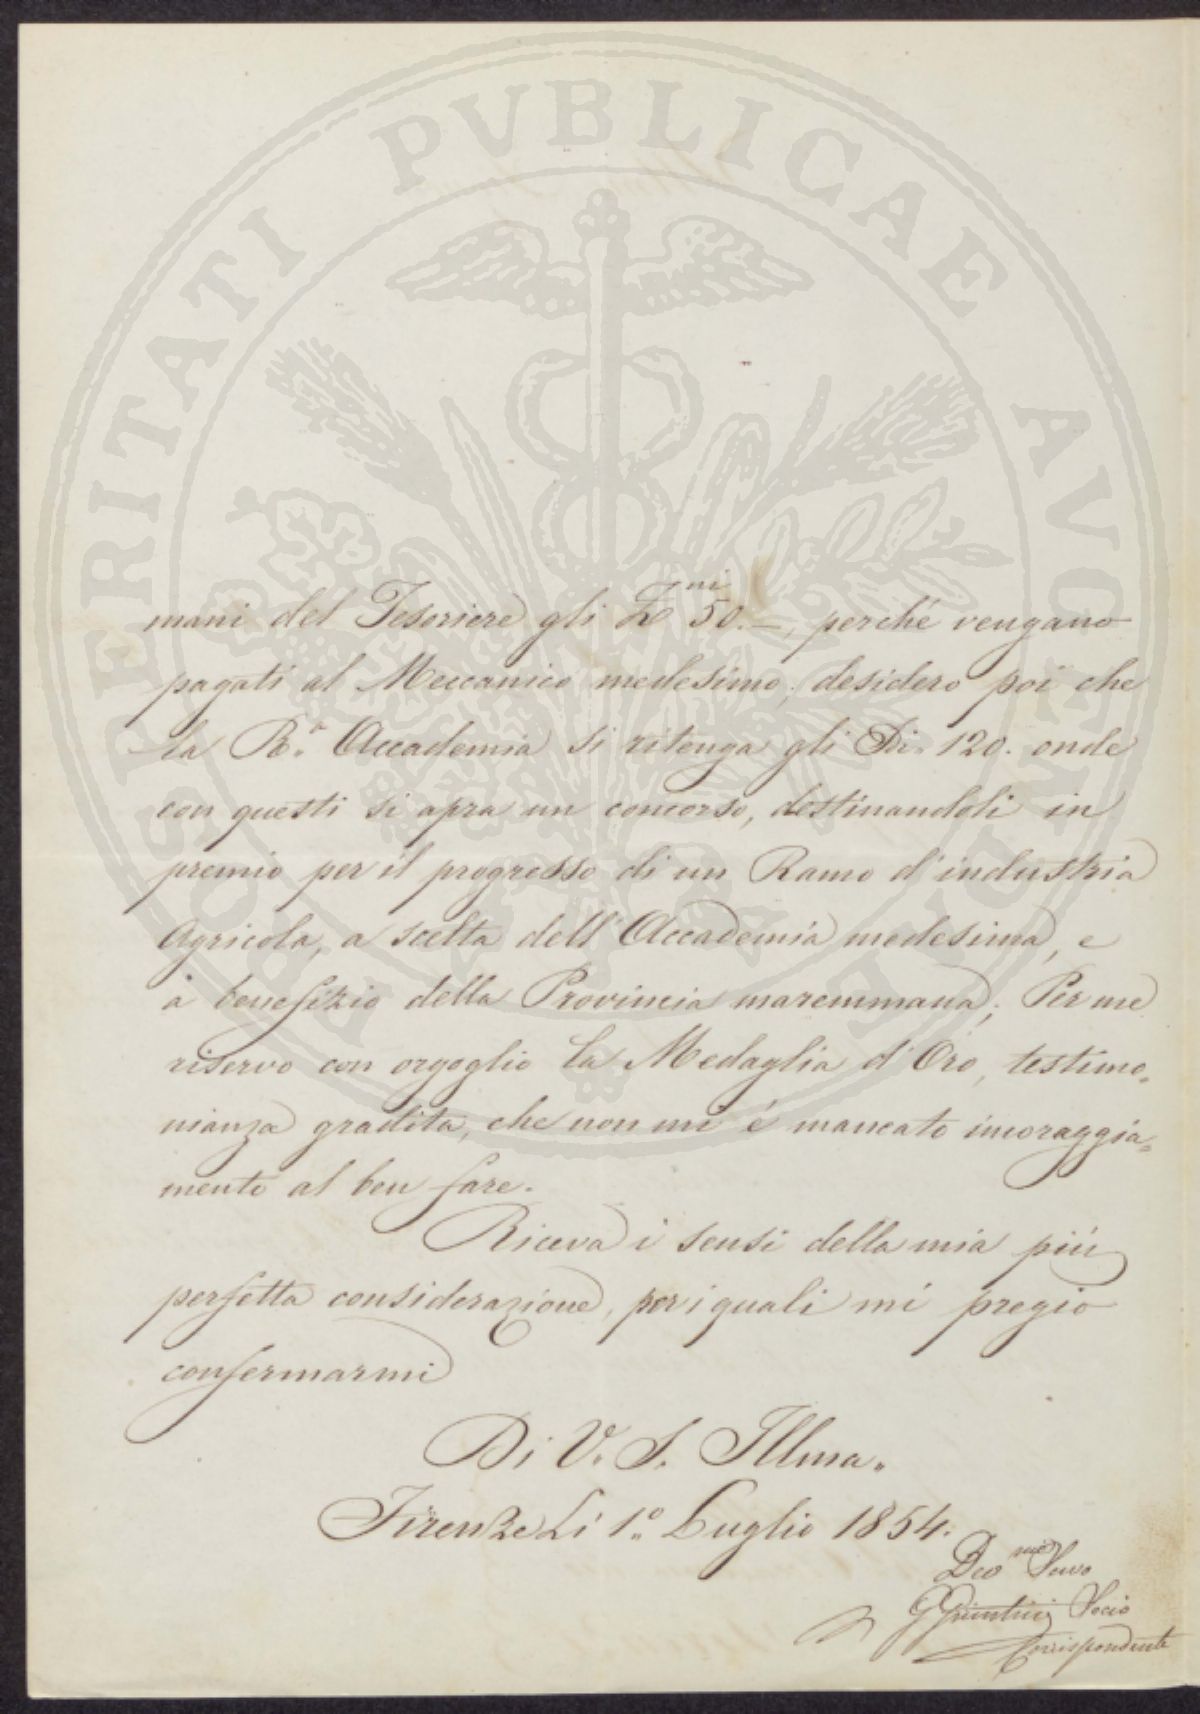 PROSPERITATI PUBLICAE AVGENDAE
mani del Tesoriere gli Z.ni 50.—, perché vengano
pagati al Meccanico medesimo; desidero poi che
la R.a Accademia si ritenga gli Di. 120. onde
con questi si apra un concorso, destinandoli in
premio per il progresso di un Ramo d'industria
Agricola, a scelta dell'Accademia medesima, e
a benefizio della Provincia maremmana; Per me
riservo con orgoglio la Medaglia d'Oro, testimo„
nianza gradita, che non mi é mancato incoraggia„
mento al ben fare.
Riceva i sensi della mia più
perfetta considerazione, per i quali mi pregio
confermarmi
Di V. S. Illma.
Firenze Li 1.o Luglio 1854.
Deo.mo Servo
Socio
Corrispondente